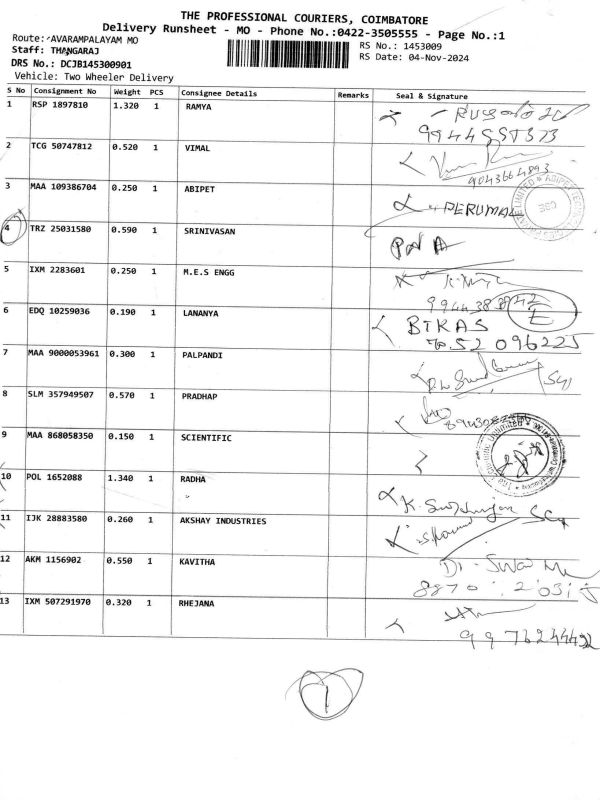 THE PROFESSIONAL COURIERS, COIMBATORE
Delivery Runsheet - MO - Phone No.:0422-3505555 - Page No.:1
Route: AVARAMPALAYAM MO
RS No.: 1453009
Staff: THANGARAJ
RS Date: 04-Nov-2024
DRS No.: DCJB145300901
Vehicle: Two Wheeler Delivery
S No Consignment No Weight PCS Consignee Details Remarks Seal & Signature
1 RSP 1897810 1.320 1 RAMYA
2 TCG 50747812 0.520 1 VIMAL
9043664893
3 MAA 109386704 0.250 1 ABIPET
PERUMAL
4 TRZ 25031580 0.590 1 SRINIVASAN
5 IXM 2283601 0.250 1 M.E.S ENGG
6 EDQ 10259036 0.190 1 LANANYA
BIKAS
7 MAA 9000053961 0.300 1 PALPANDI
8 SLM 357949507 0.570 1 PRADHAP
9 MAA 868058350 0.150 1 SCIENTIFIC
10 POL 1652088 1.340 1 RADHA
11 IJK 28883580 0.260 1 AKSHAY INDUSTRIES
12 AKM 1156902 0.550 1 KAVITHA
13 IXM 507291970 0.320 1 RHEJANA
1